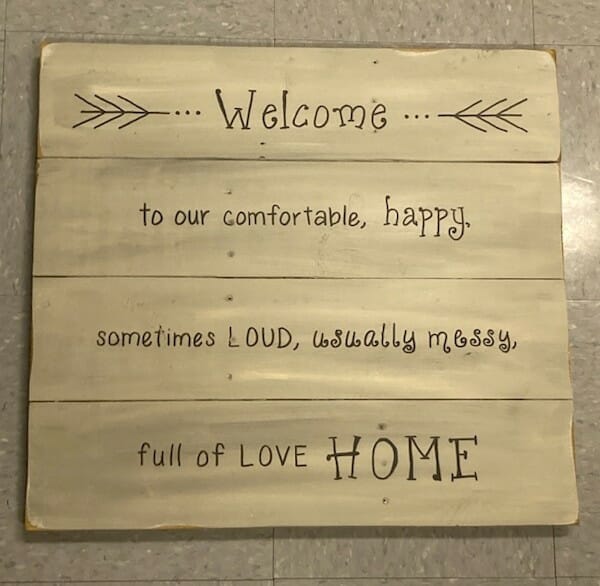 ... Welcome ...
to our comfortable, happy,
sometimes LOUD, usually messy,
full of LOVE HOME